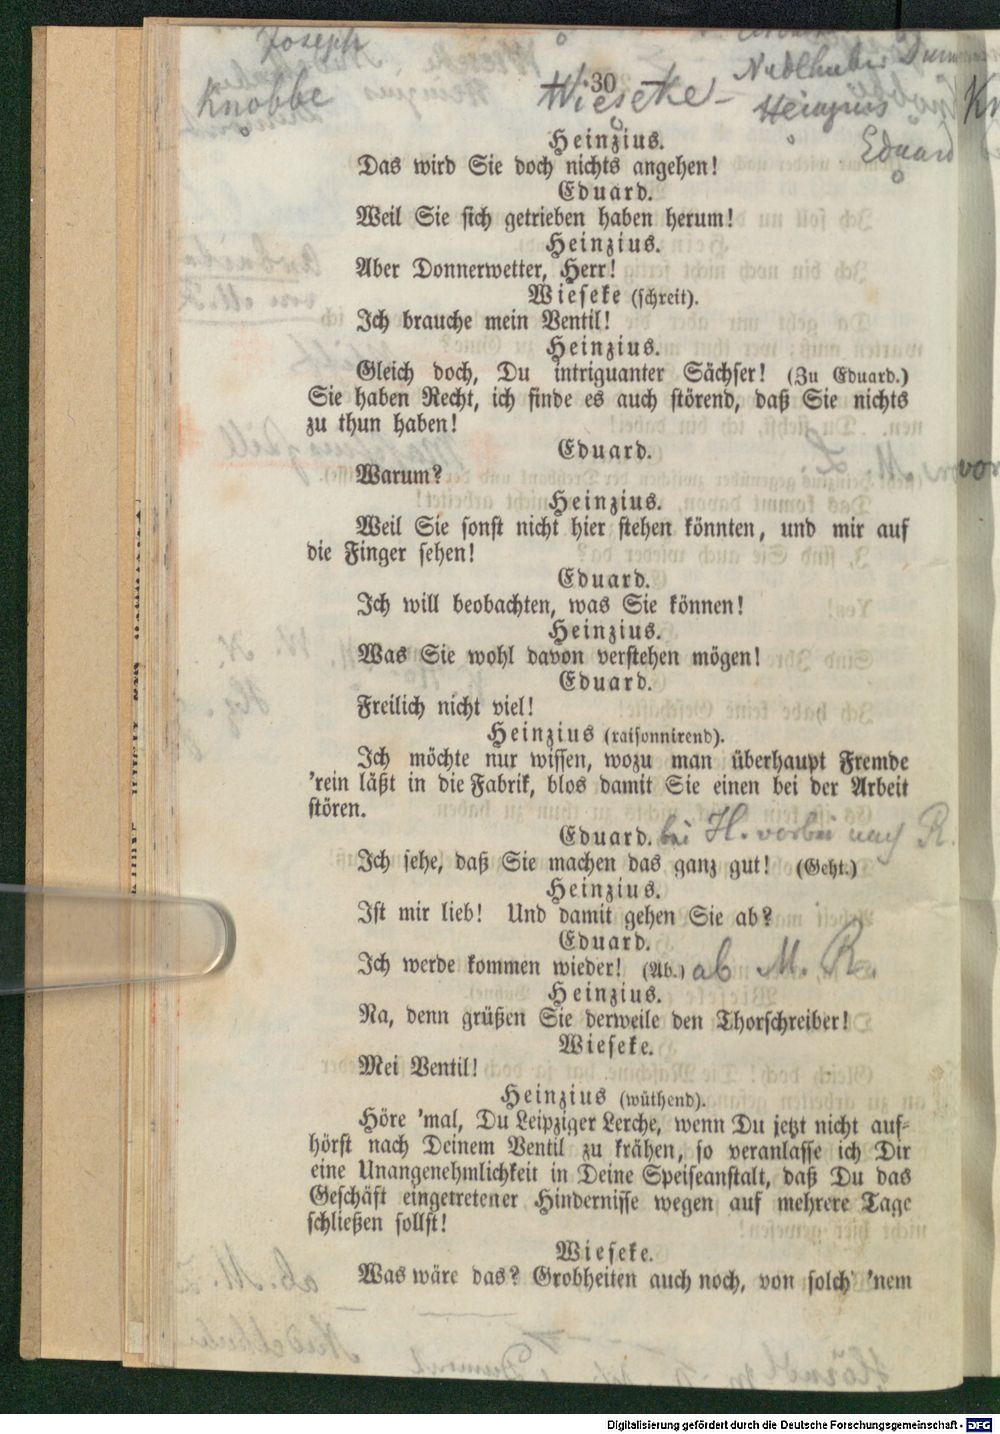 Joseph
Knobbe
30
Wieseke –
Nudlhuber
Heinzius
Eduard
Heinzius.
Das wird Sie doch nichts angehen!
Eduard.
Weil Sie sich getrieben haben herum!
Heinzius.
Aber Donnerwetter, Herr!
Wieseke (schreit).
Ich brauche mein Ventil!
Heinzius.
Gleich doch, Du intriguanter Sächser! (Zu Eduard.)
Sie haben Recht, ich finde es auch störend, daß Sie nichts
zu thun haben!
Eduard.
Warum?
Heinzius.
Weil Sie sonst nicht hier stehen könnten, und mir auf
die Finger sehen!
Eduard.
Ich will beobachten, was Sie können!
Heinzius.
Was Sie wohl davon verstehen mögen!
Eduard.
Freilich nicht viel!
Heinzius (raisonnirend).
Ich möchte nur wissen, wozu man überhaupt Fremde
'rein läßt in die Fabrik, blos damit Sie einen bei der Arbeit
stören.
Eduard. bei H. vorbei nach R.
Ich sehe, daß Sie machen das ganz gut! (Geht.)
Heinzius.
Ist mir lieb! Und damit gehen Sie ab?
Eduard.
Ich werde kommen wieder! (Ab.) ab M. R.
Heinzius.
Na, denn grüßen Sie derweile den Thorschreiber!
Wieseke.
Mei Ventil!
Heinzius (wüthend).
Höre 'mal, Du Leipziger Lerche, wenn Du jetzt nicht auf-
hörst nach Deinem Ventil zu krähen, so veranlasse ich Dir
eine Unangenehmlichkeit in Deine Speiseanstalt, daß Du das
Geschäft eingetretener Hindernisse wegen auf mehrere Tage
schließen sollst!
Wieseke.
Was wäre das? Grobheiten auch noch, von solch' 'nem
Digitalisierung gefördert durch die Deutsche Forschungsgemeinschaft - DFG